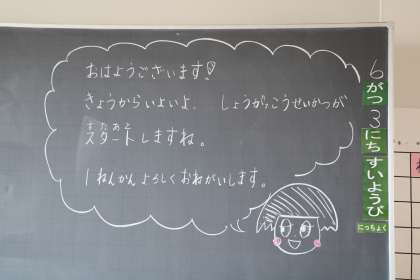 おはようございます!
きょうからいよいよ、しょうがっこうせいかつが
スタートしますね。
すたあと
1ねんかんよろしくおねがいします。
6がつ3にちすいようび
にっちょく